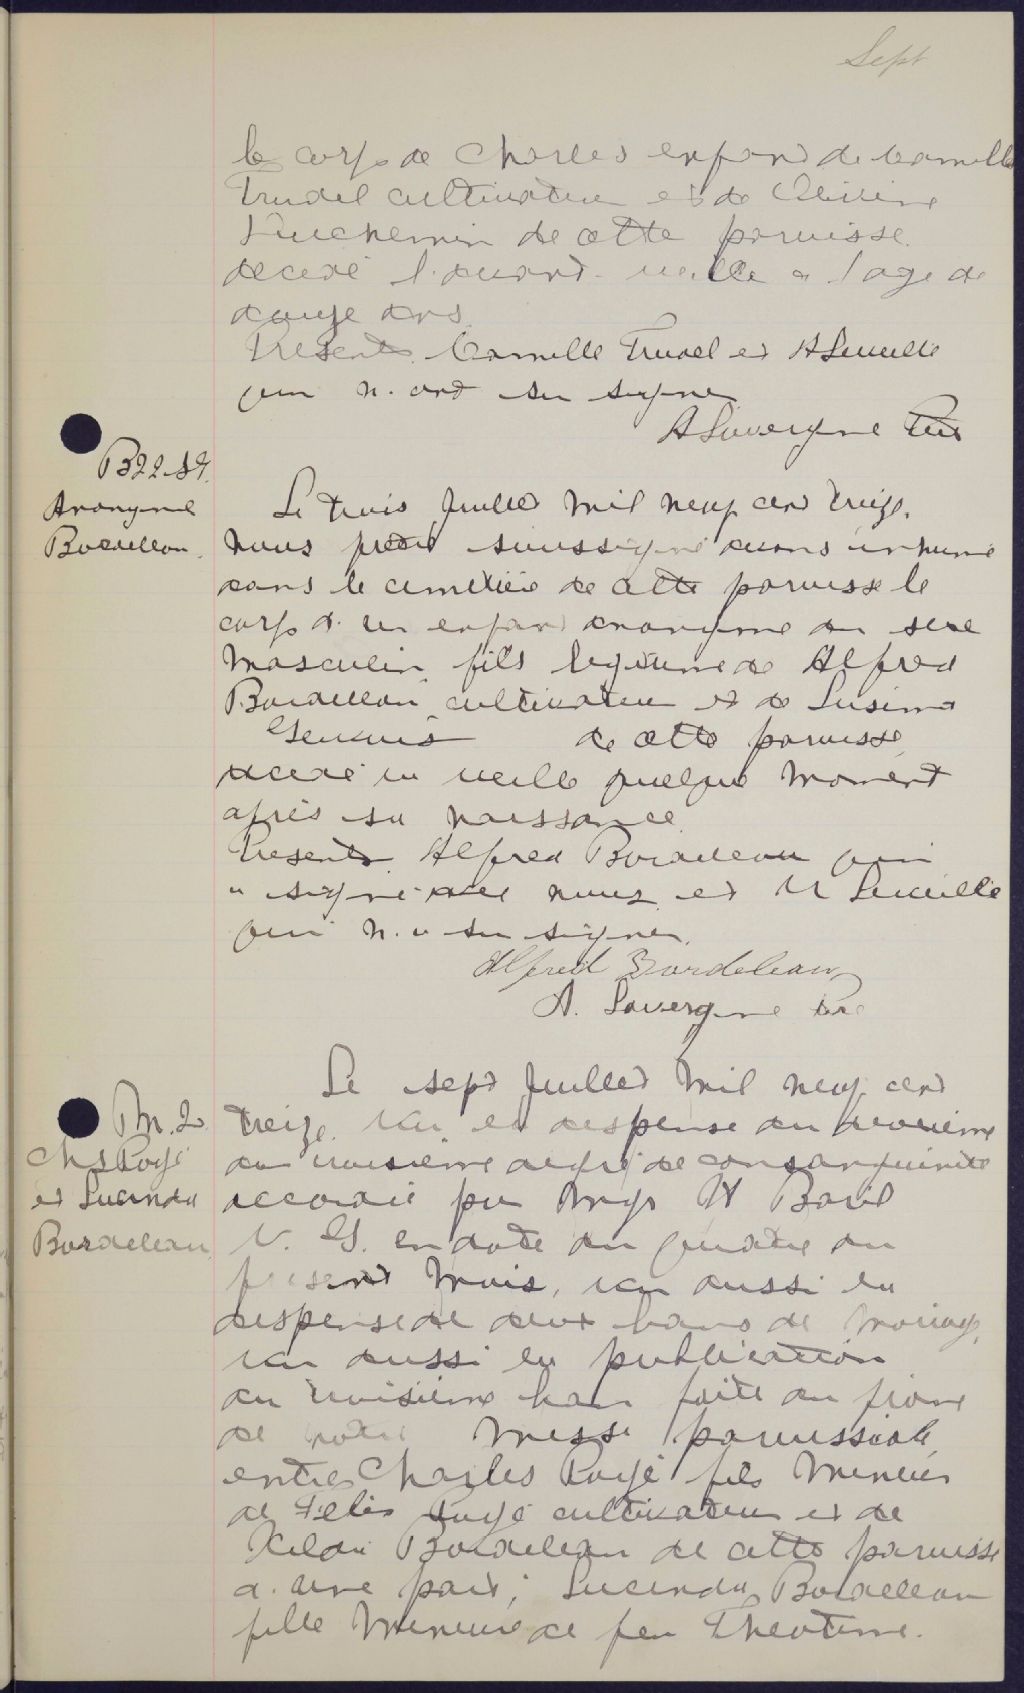 Sept
le corps de Charles enfant de Camille
Trudel cultivateur et de
Duchemin de cette paroisse
decede l'avant-veille a l'age de
ans
Presents Camille Trudel et A
qui n'ont su signer
A Lavergne Ptre
B22 S9.
Anonyme
Bordeleau.
Le trois Juillet Mil neuf cent treize.
nous pretre soussigne avons inhumé
dans le cimetière de cette paroisse le
corps d'un enfant anonyme du sexe
Masculin fils legitime de Alfred
Bordeleau cultivateur et de
Gervais de cette paroisse
decede la veille quelque Moment
après sa naissance
Presents Alfred Bordeleau qui
a signé avec nous et
qui n'a su signer.
Alfred Bordeleau
A. Lavergne Ptre
M. 2
Chs Pagé
et Lucinda
Bordeleau
Le sept Juillet Mil neuf cent
treize. Vu la dispense du deuxieme
au troisieme degré de consanguinite
accordée par Mgr H Baril
V. G. en date du quatre du
present Mois, vu aussi la
dispense de deux bans de Mariage,
vu aussi la publication
du troisieme ban faite au prone
de notre Messe paroissiale
entre Charles Pagé fils Mineur
de Felix Pagé cultivateur et de
Bordeleau de cette paroisse
d'une part; Lucinda Bordeleau
fille Mineure de feu Theotime.